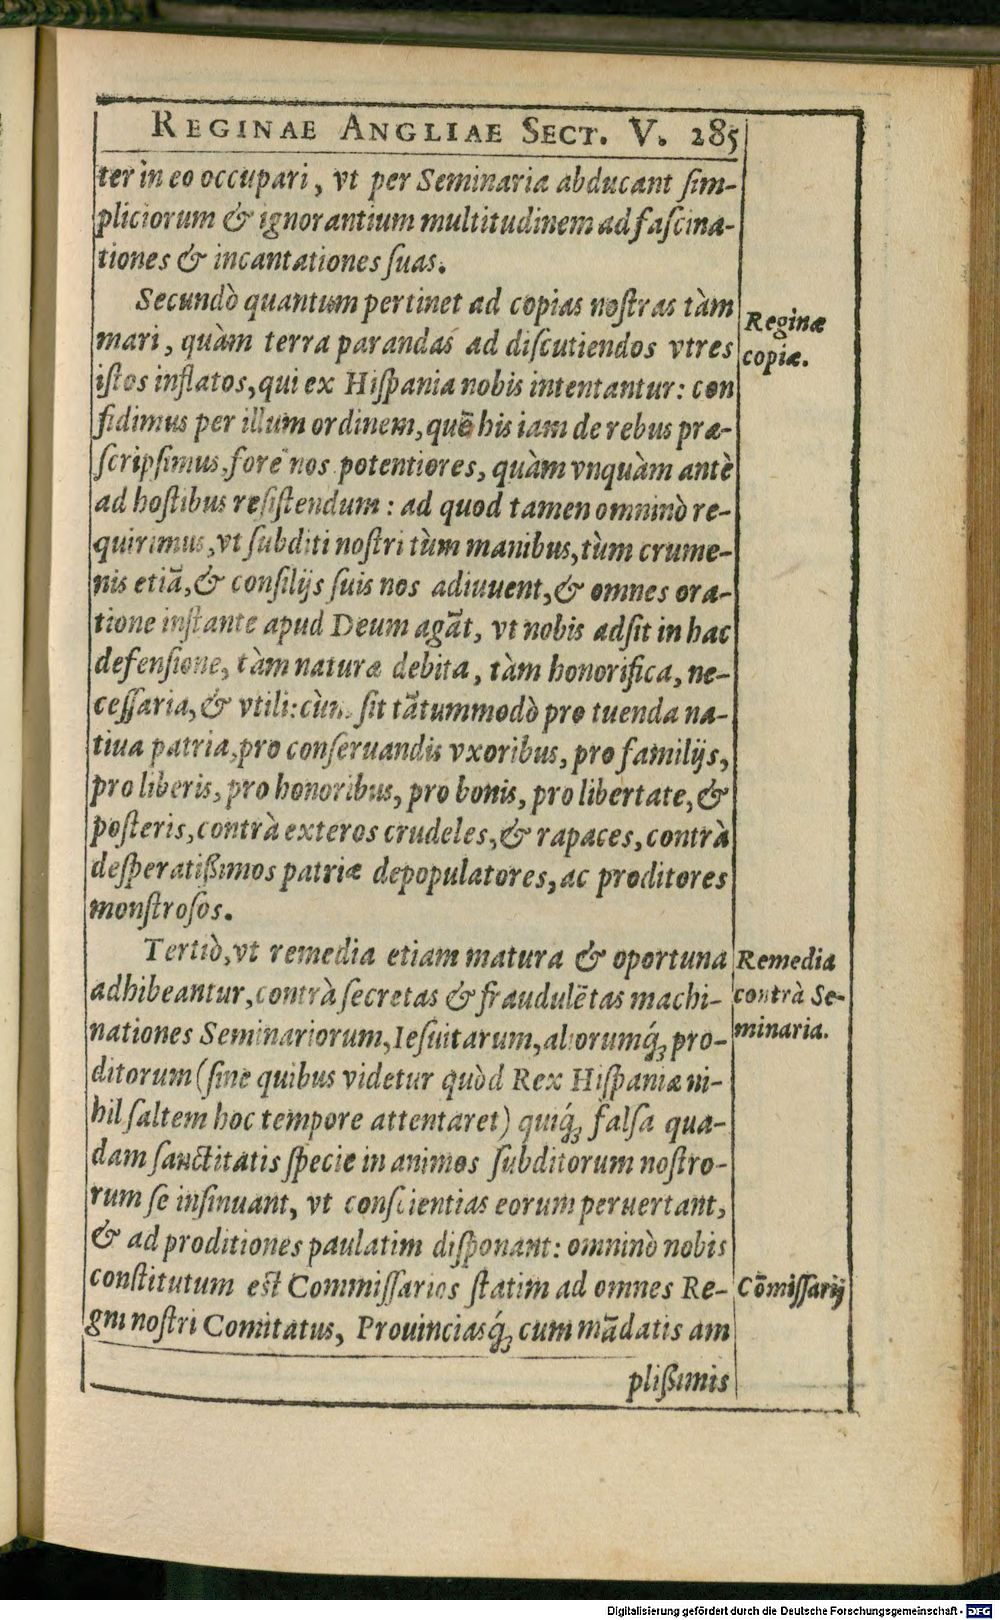 REGINAE ANGLIAE SECT. V. 285
ter in eo occupari, vt per Seminaria abducant ſim-
pliciorum & ignorantium multitudinem ad faſcina-
tiones & incantationes ſuas.
Secundò quantum pertinet ad copias noſtras tàm
mari, quàm terra parandas ad diſcutiendos vtres
iſtos inflatos, qui ex Hiſpania nobis intentantur: con
fidimus per illum ordinem, quē his iam de rebus præ-
ſcripſimus, fore nos potentiores, quàm vnquàm antè
ad hoſtibus reſiſtendum: ad quod tamen omninò re-
quirimus, vt ſubditi noſtri tùm manibus, tùm crume-
nis etiā, & conſilijs ſuis nos adiuuent, & omnes ora-
tione inſtante apud Deum agāt, vt nobis adſit in hac
defenſione, tàm naturæ debita, tàm honorifica, ne-
ceſſaria, & vtili: cùm ſit tātummodò pro tuenda na-
tiua patria, pro conſeruandis vxoribus, pro familijs,
pro liberis, pro honoribus, pro bonis, pro libertate, &
poſteris, contrà exteros crudeles, & rapaces, contrà
deſperatißimos patriæ depopulatores, ac proditores
monſtroſos.
Tertiò, vt remedia etiam matura & oportuna
adhibeantur, contrà ſecretas & fraudulētas machi-
nationes Seminariorum, Ieſuitarum, aliorumq́; pro-
ditorum (ſine quibus videtur quòd Rex Hiſpaniæ ni-
hil ſaltem hoc tempore attentaret) quiq́; falſa qua-
dam ſanctitatis ſpecie in animos ſubditorum noſtro-
rum ſe inſinuant, vt conſcientias eorum peruertant,
& ad proditiones paulatim diſponant: omninò nobis
conſtitutum eſt Commiſſarios ſtatim ad omnes Re-
gni noſtri Comitatus, Prouinciasq́; cum mādatis am
plißimis
Reginæ
copiæ.
Remedia
contrà Se-
minaria.
Cōmiſſarij
Digitalisierung gefördert durch die Deutsche Forschungsgemeinschaft - DFG